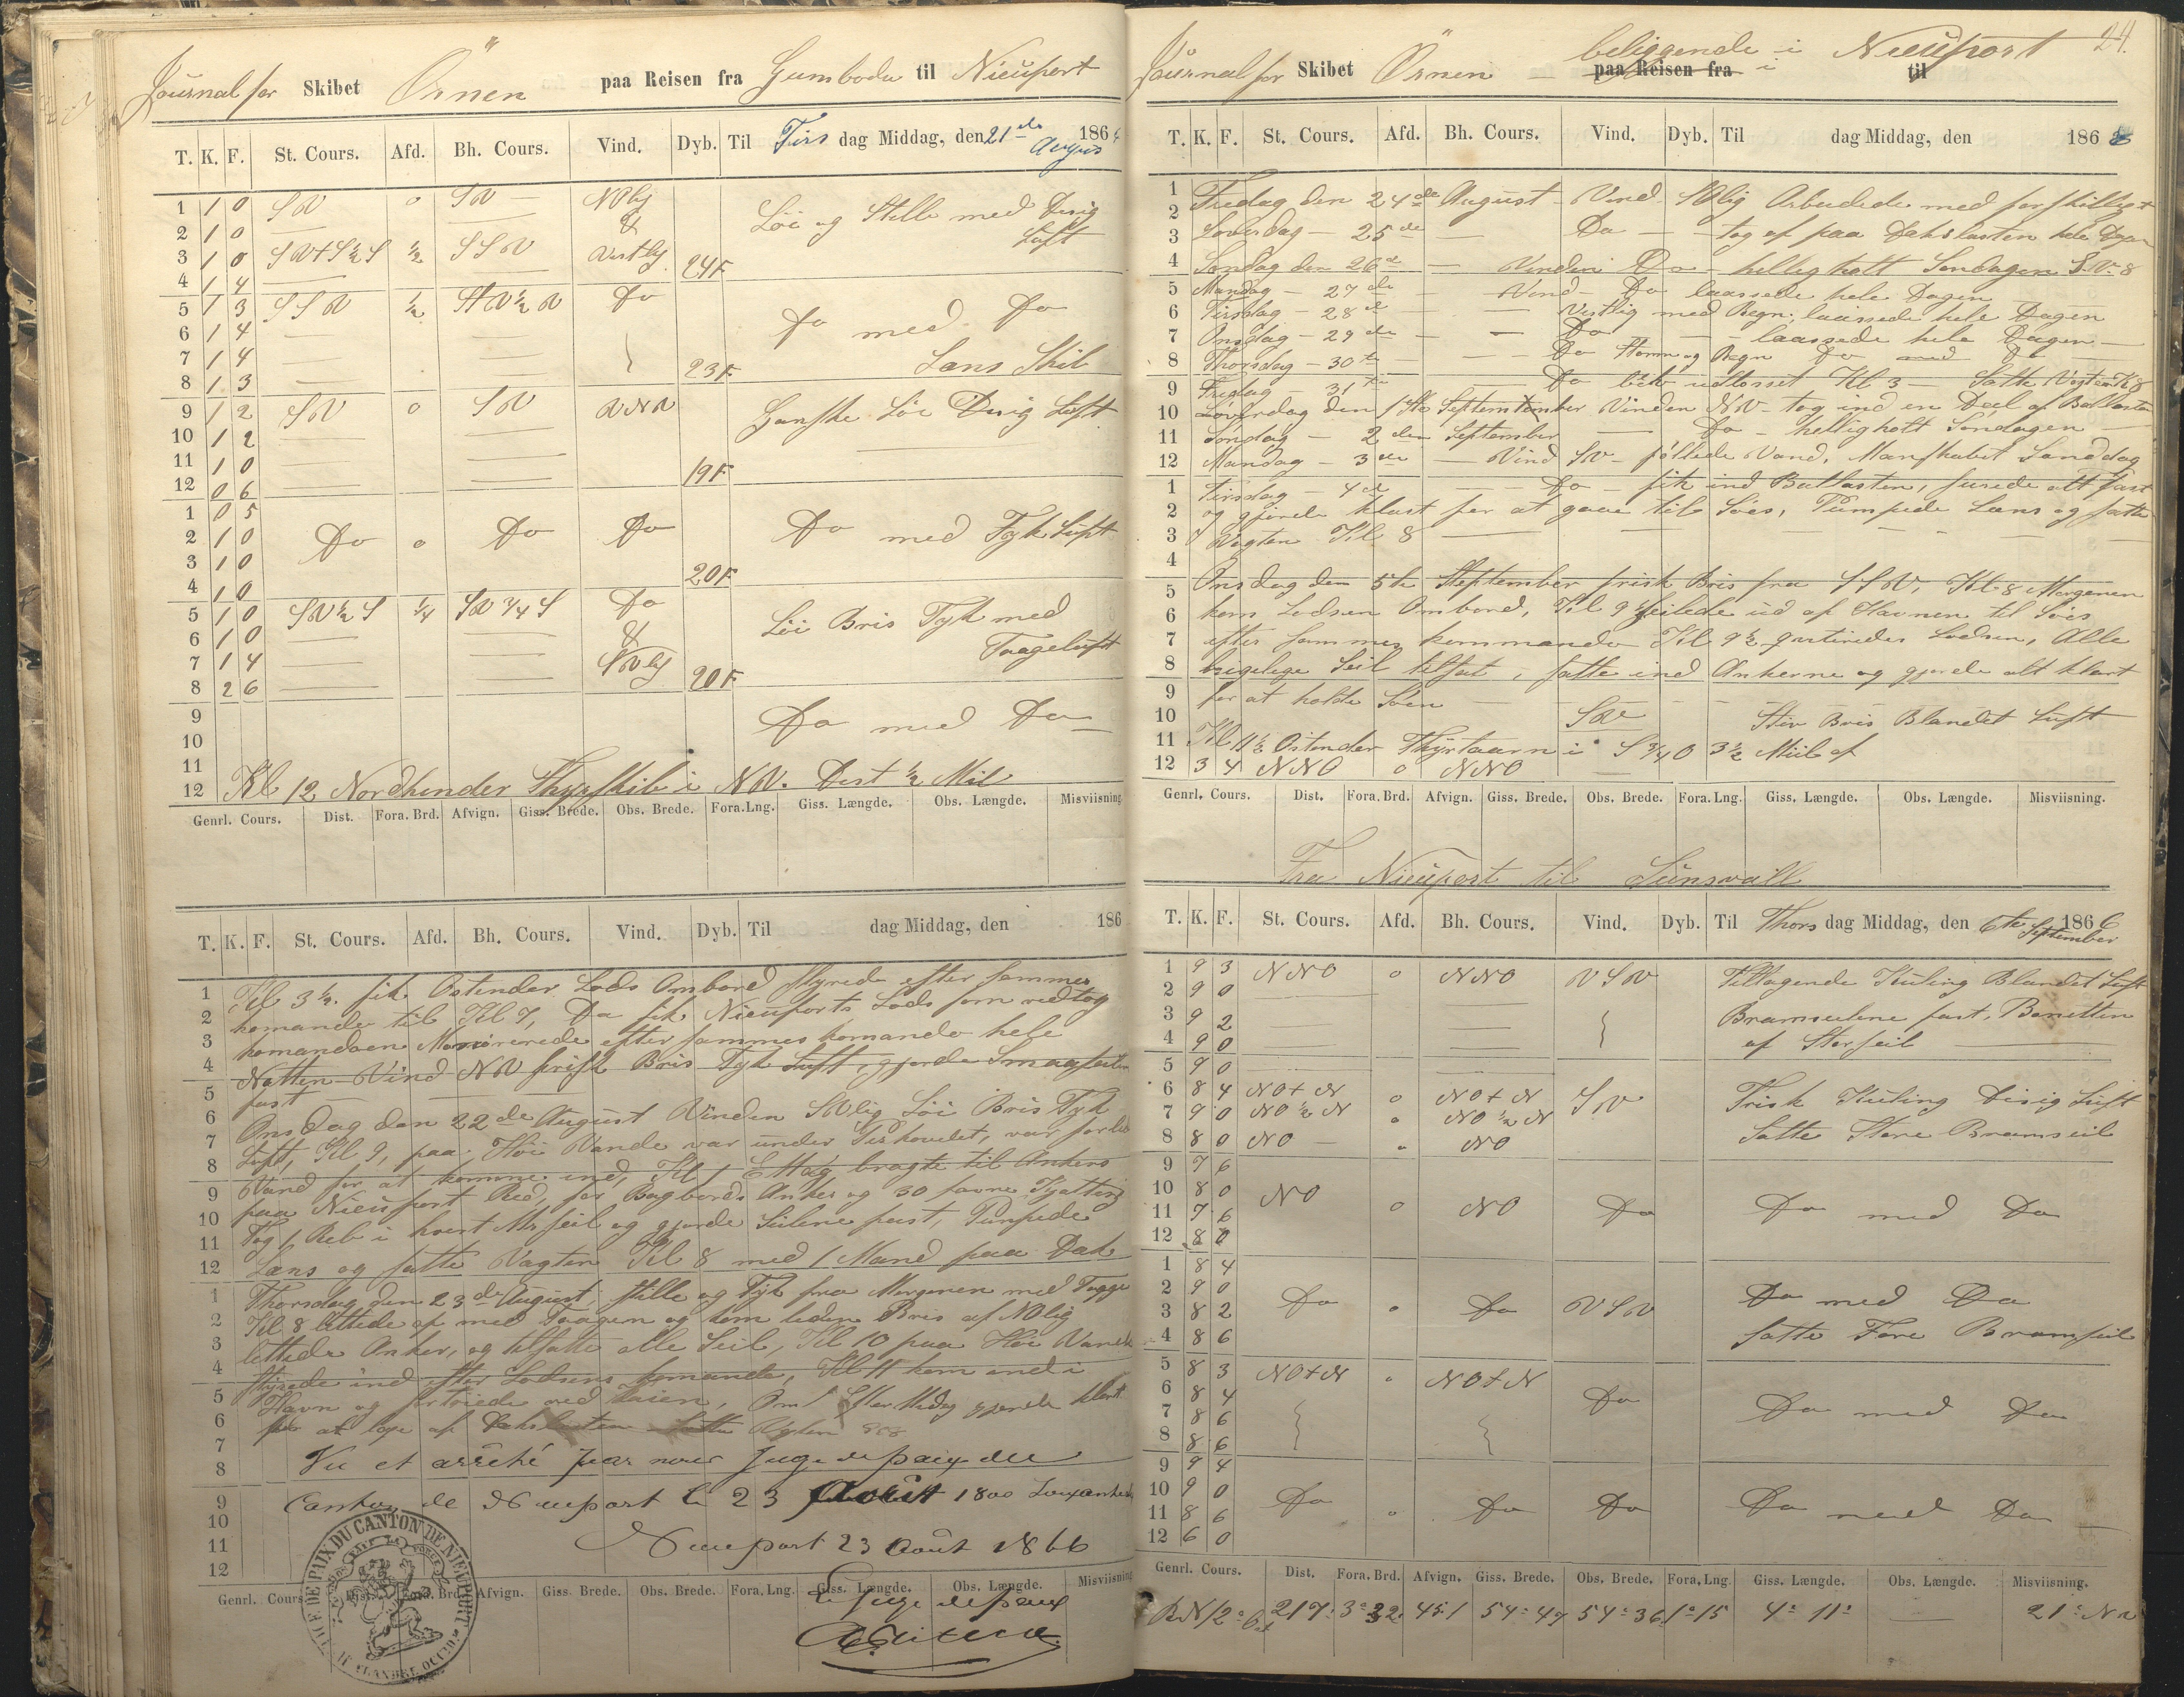 Journal for Skibet Örnen paa Reisen fra Gumboda til Nieuport
T. K. F. St. Cours. Afd. Bh. Cours. Vind. Dyb. Til Tirs dag Middag, den 21de August 186
1 1 0 SW o SW NOlig
2 1 0 & Löi og Stille med Disig
3 1 0 SW+S½S ½ SSW Vestlig Luft
4 1 4 24F
5 1 3 SSW ½ Do
6 1 4 Do med Do
7 1 4 Lens Skib
8 1 3 23F
9 1 2 SW o SW WNW Ganske Löi Disig Luft
10 1 2
11 1 0
12 0 6 19F
1 0 5
2 1 0 Do o Do Do Do med Tyk Luft
3 1 0
4 1 0 20F
5 1 0 SW½S ¼ SW¾S Do Löi Bris Tyk med
6 1 0 & Taageluft
7 1 4
8 2 6 20F
9 Do med Do
10
11
12 Kl 12 Nordhinder Fyrskib i NW. Dist ½ Mil
Genrl. Cours. Dist. Fora. Brd. Afvign. Giss. Brede. Obs. Brede. Fora. Lng. Giss. Længde. Obs. Længde. Misviisning
T. K. F. St. Cours. Afd. Bh. Cours. Vind. Dyb. Til dag Middag, den 186
1 Kl 3½ fik Ostender Lods Ombord styrede efter sammes
2 komando til Kl 7, Da fik Nieuports Lods som vedtog
3 komandoen efter sammes komando hele
4 Natten Vind NW frisk Bris Tyk Luft, gjorde Smaaseilen
5 fast
6 Onsdag den 22de August Vinden SWlig Löi Bris Tyk
7 Luft, Kl 9, paa Höi Vande var under Pirhovedet, var for lidt
8 Vand for at komme ind, Kl 1 bragte til Ankers
9 paa Nieuport Red, for Bagbords Anker og 30 favne Kjætting
10 Tog 1 Reb i hvert Mersseil og gjorde Seilene fast, Pumpede
11 Læns og satte Vagten Kl 8 med 1 Mand paa Dæk
12
1 Thorsdag den 23de August, stille og Tyk fra Morgenen med Taage
2 Kl 8 lettede af med Taagen og kom liden Bris af NOlig
3 lettede Anker, og tilsatte alle Seil, Kl 10 paa Höi Vande
4 styrede ind efter Lodsens komando, Kl 11 kom ind i
5 Havn og fortöiede ved Kaien, Om Efter Midag gjorde klart
6 for at tage af Dækslasten satte Vagten Kl 8
7 Vu et arrêté par nous Juge de paix du
8 Canton de Nieuport le 23 Août 1800 soixante
9
10
11 Nieuport 23 Août 1866
12
JUGE DE PAIX DU CANTON DE NIEUPORT
Genrl. Cours. Dist. Fora. Brd. Afvign. Giss. Brede. Obs. Brede. Fora. Lng. Giss. Længde. Obs. Længde. Misviisning
Le juge de paix
24.
Journal for Skibet Örnen – beliggende i Nieuport
paa Reisen fra til
T. K. F. St. Cours. Afd. Bh. Cours. Vind. Dyb. Til dag Middag, den 186
1 Fredag den 24de August – Vind SOlig Arbeidede med forskielligt
2 Löverdag – 25de Do tog af paa Dækslasten hele Dagen
3 Söndag den 26de – Vinden Do – helligholt Söndagen S.V. 8
4 Mandag – 27de – Vind – Do laassede hele Dagen
5 Tirsdag – 28de Vestlig med Regn, laassede hele Dagen
6 Onsdag – 29de Do laassede hele Dagen
7 Thorsdag – 30te Do Storm og Regn Do med Do
8 Fredag – 31te Do blev udlosset Kl 3 – Satte Vagten Kl 8
9 Löverdag den 1ste September Vinden NW – tog ind en Deel af Ballasten
10 Söndag – 2den September Do – helligholt Söndagen
11 Mandag – 3die Vind SW – föllede Vand, Manskabet Landdag
12 Tirsdag – 4de Do – fik ind Ballasten, surede alt fast
1 og gjorde klart for at gaae til Söes, Pumpede Læns og satte
2 Vagten Kl 8
3
4 Onsdag den 5te September frisk Bris fra SSW, Kl 8 Morgenen
5 kom Lodsen Ombord, Kl 9 seilede ud af Havnen til Söes
6 efter sammes kommando Kl 9½ qviterede Lodsen, Alle
7 bögelige Seil tilsat, satte ind Ankerne og gjorde alt klart
8 for at holde Söen
9
10 SW Stiv Bris Blandet Luft
11 Kl 11½ Ostender Fyrtaarn i S¾O 3½ Miil af
12 3 4 NNO o NNO
Genrl. Cours. Dist. Fora. Brd. Afvign. Giss. Brede. Obs. Brede. Fora. Lng. Giss. Længde. Obs. Længde. Misviisning.
Fra Nieuport til Sunsvall
T. K. F. St. Cours. Afd. Bh. Cours. Vind. Dyb. Til Thors dag Middag, den 6te September 1866
1 9 3 NNO o NNO VSW Tiltagende Kuling Blandet Luft
2 9 0
3 9 2 Bramseilene fast, Bonetten
4 9 0 af Storseil
5 9 0
6 8 4 NO+N o NO+N SW Frisk Kuling Disig Luft
7 9 0 NO½N o NO½N
8 8 0 NO NO Satte Store Bramseil
9 7 6
10 8 0 NO o NO Do Do med Do
11 7 6
12 8 0
1 8 4
2 9 0 Do Do VSW Do med Do
3 8 2
4 8 6 satte Fore Bramseil
5 8 3 NO+N NO+N
6 8 4 Do Do med Do
7 8 6
8 8 6
9 9 4
10 9 0 Do Do Do Do med Do
11 8 6
12 6 0
Genrl. Cours. Dist. Fora. Brd. Afvign. Giss. Brede. Obs. Brede. Fora. Lng. Giss. Længde. Obs. Længde. Misviisning.
217 45.1 54° 47 54° 36 1° 15 4° 11 21°